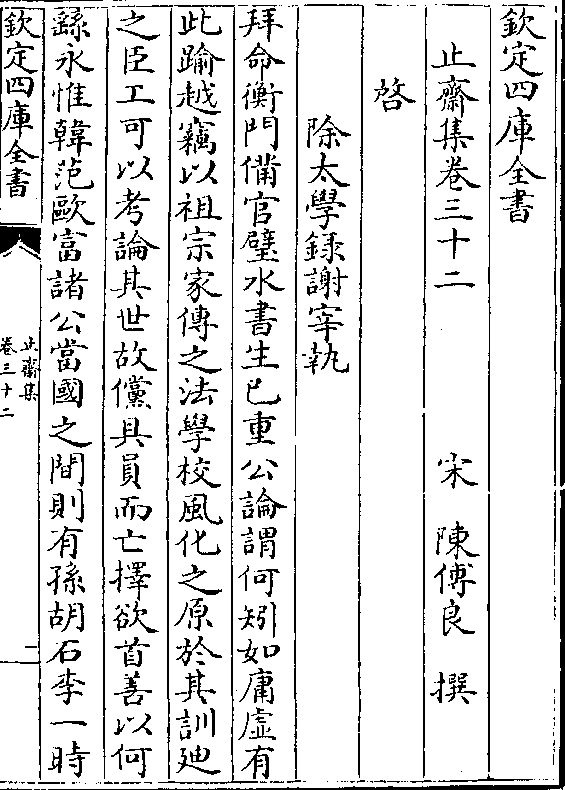 欽定四庫全書
止齋集卷三十二　宋　陳傅良　撰
啓
除太學錄謝宰執
拜命衡門備官璧水書生已重公論謂何矧如庸虛有
此踰越竊以祖宗家傳之法學校風化之原於其訓廸
之臣工可以考論其世故儻具員而亡擇欲首善以何
繇永惟韓范歐富諸公當國之間則有孫胡石李一時
欽定四庫全書
止齋集
卷三十二
一